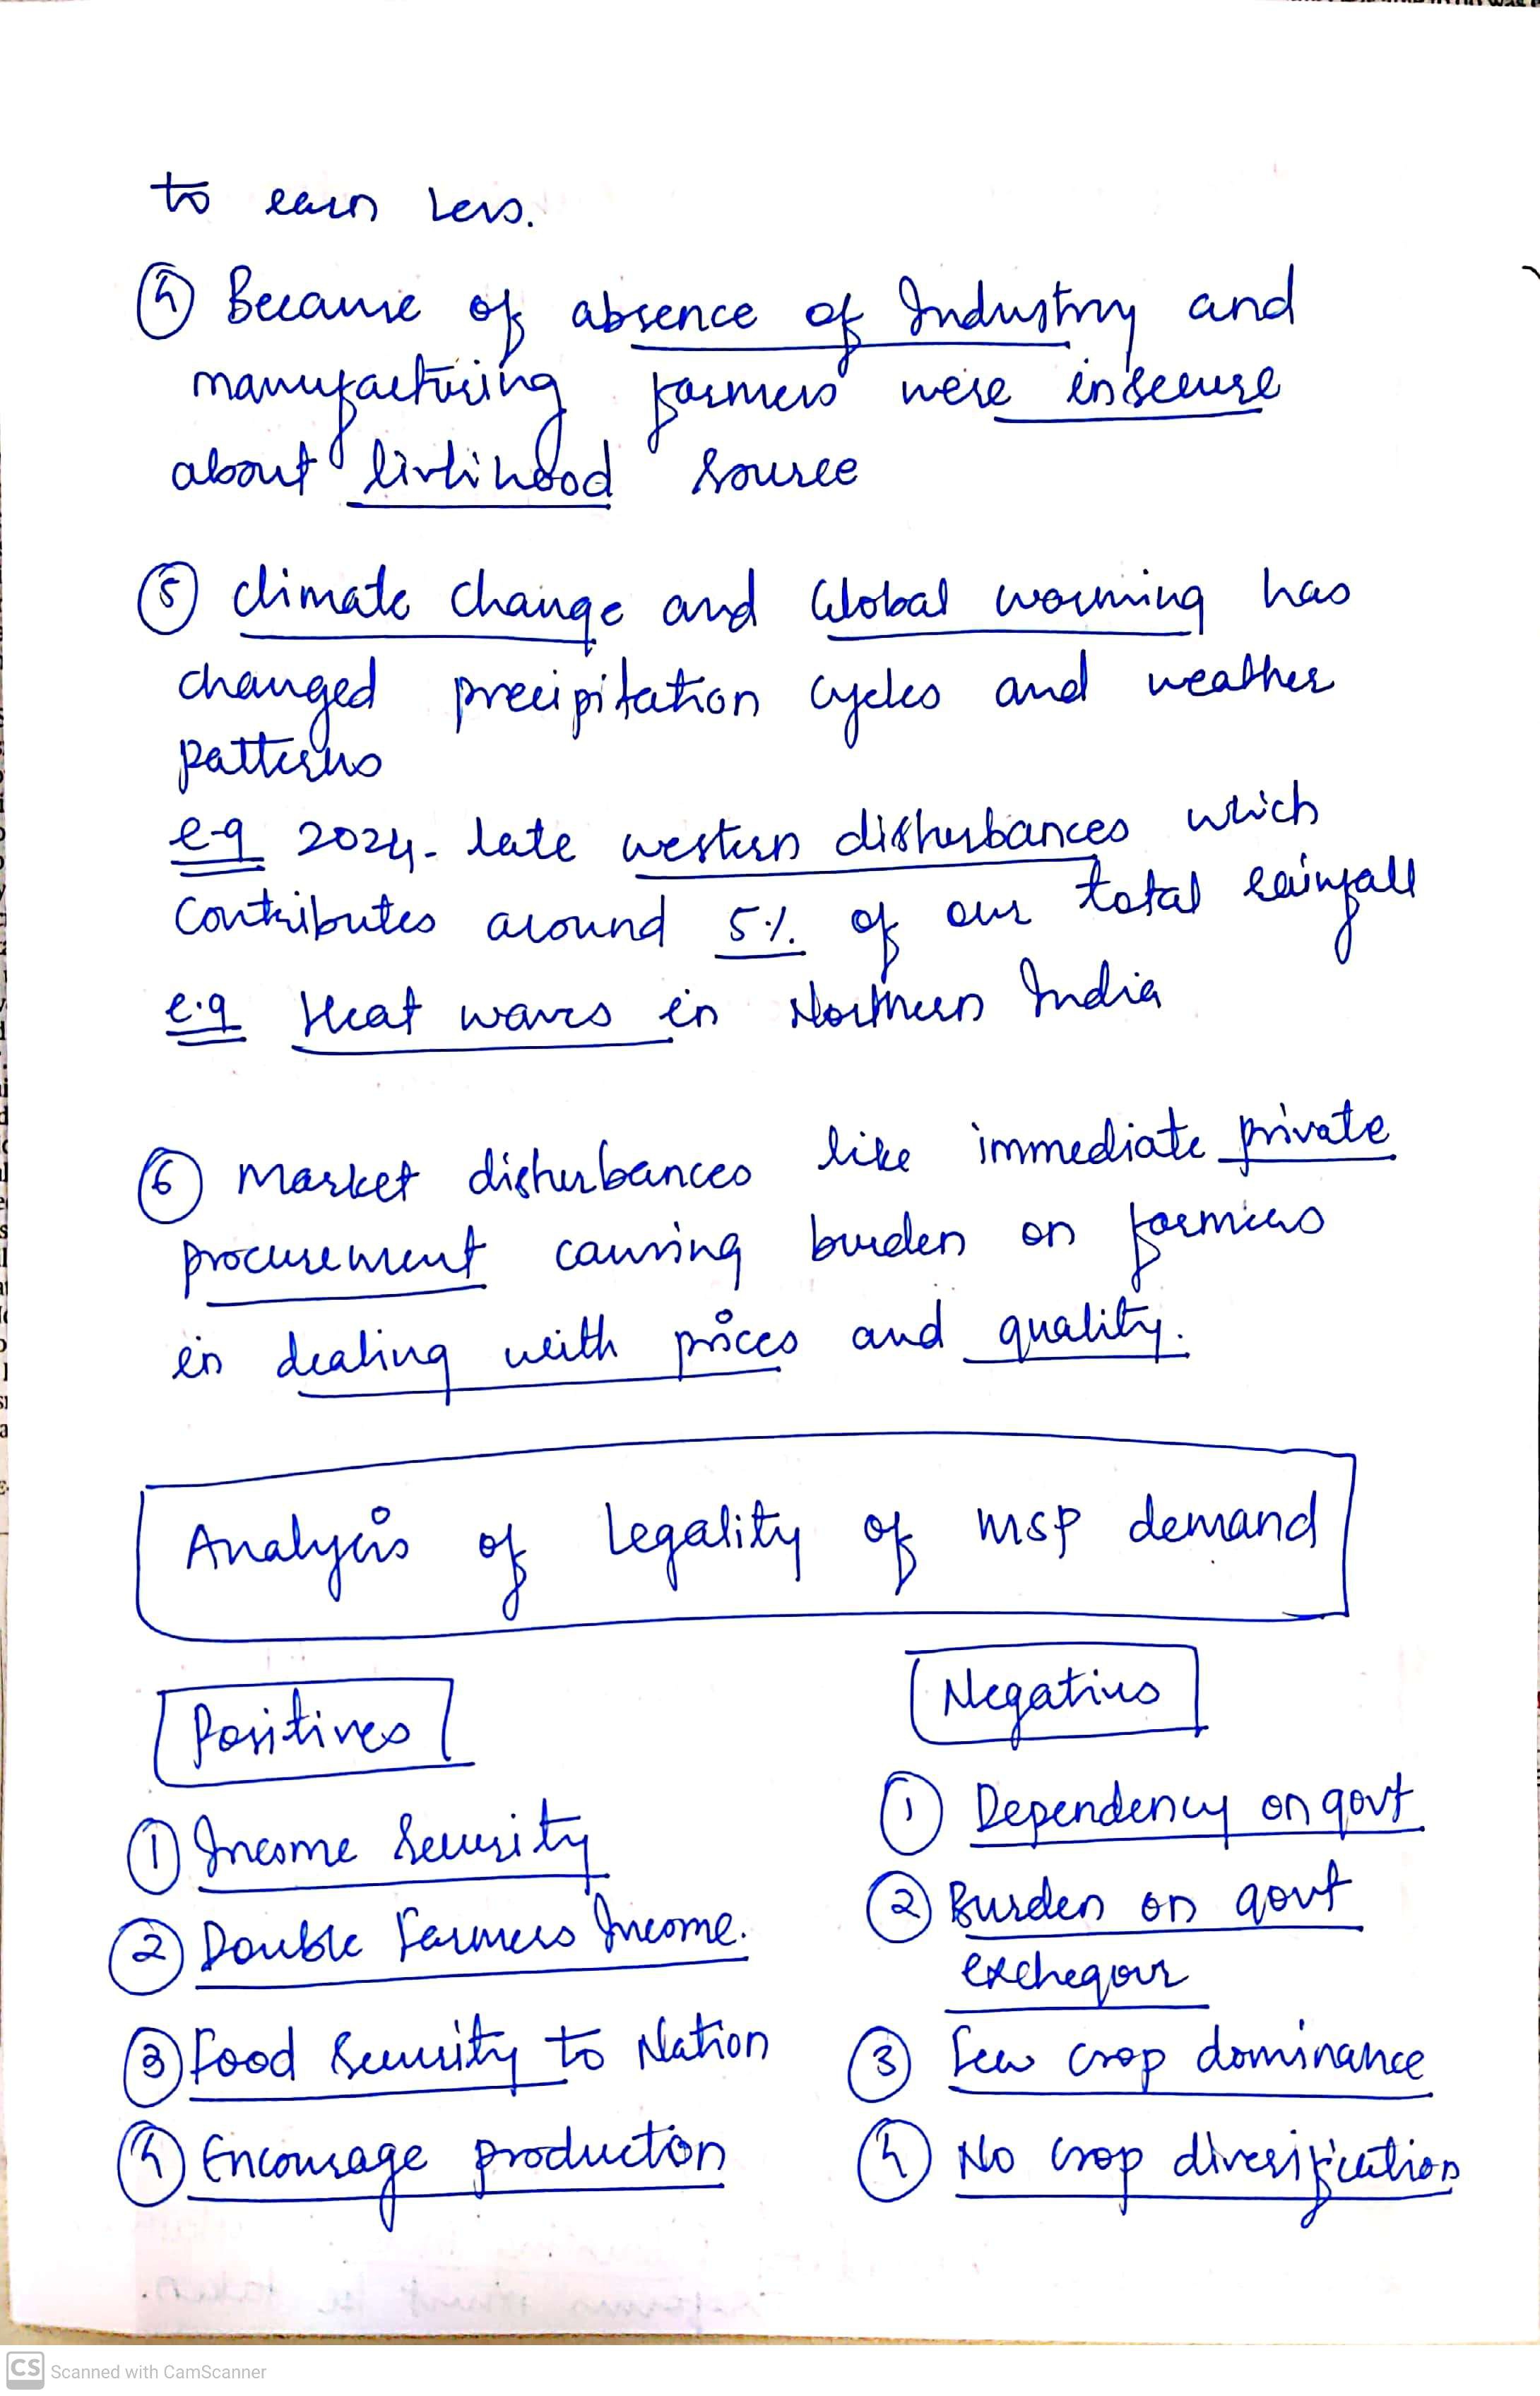 to earn less.
④ Because of absence of Industry and
manufacturing farmers were insecure
about livlihood source
⑤ climate change and Global warming has
changed precipitation cycles and weather
patterns
e.g 2024- late western disturbances which
contributes around 5% of our total rainfall
e.g Heat waves in Northern India
⑥ Market disturbances like immediate private
procurement causing burden on farmers
in dealing with prices and quality.
Analysis of Legality of MSP demand
Positives
① Income Security
② Double Farmers Income.
③ Food Security to Nation
④ Encourage production
Negatives
① Dependency on govt
② Burden on govt
exchequr
③ Few crop dominance
④ No crop diversification
CS Scanned with CamScanner